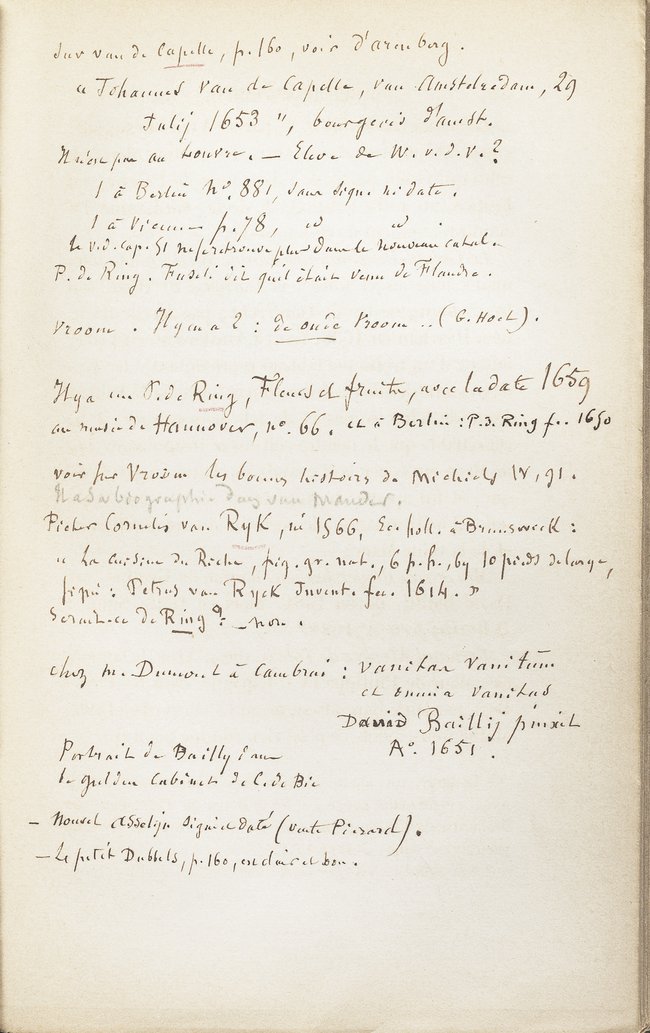 Sur van de Capelle, p. 160, voir d'Arenberg.
« Johannes van de Capelle, van Amsteledam, 29
Julij 1653 », bourgeois d'Amst.
N'est pas au Louvre. — Elève de W. v. d. V.?
1 à Berlin No. 881, sans signe ni date.
1 à Vienne p. 78, id id.
Le v. d. Cap. 51 ne se retrouve plus dans le nouveau catal.
P. de Ring. Fuseli dit qu'il était venu de Flandre.
Vroom. Il y en a 2 : de oude Vroom .. (G. Hoet).
Il y a un P. de Ring, Fleurs et fruits, avec la date 1659
au musée de Hannover, no. 66. et à Berlin : P. d. Ring f. 1650
voir sur Vroom les bonnes histoires de Michiels IV, 91.
Il a sa biographie dans van Mander.
Pieter Cornelis van Ryk, né 1566, Ec. holl. à Brunswick :
« La cuisine du Riche, fig. gr. nat., 6 p. h., by 10 pieds de large,
signé : Petrus van Ryck Invent. fec. 1614. »
Serait-ce de Ring? — non.
chez M. Dumont à Cambrai : vanitas vanitum
et omnia vanitas
David Baillij pinxit
Ao. 1651.
Portrait de Bailly dans
le gulden Cabinet de C. de Bie
— Nouvel Asselijn signé et daté (vente Pierard).
— Le petit Dubbels, p. 160, est clair et bon.